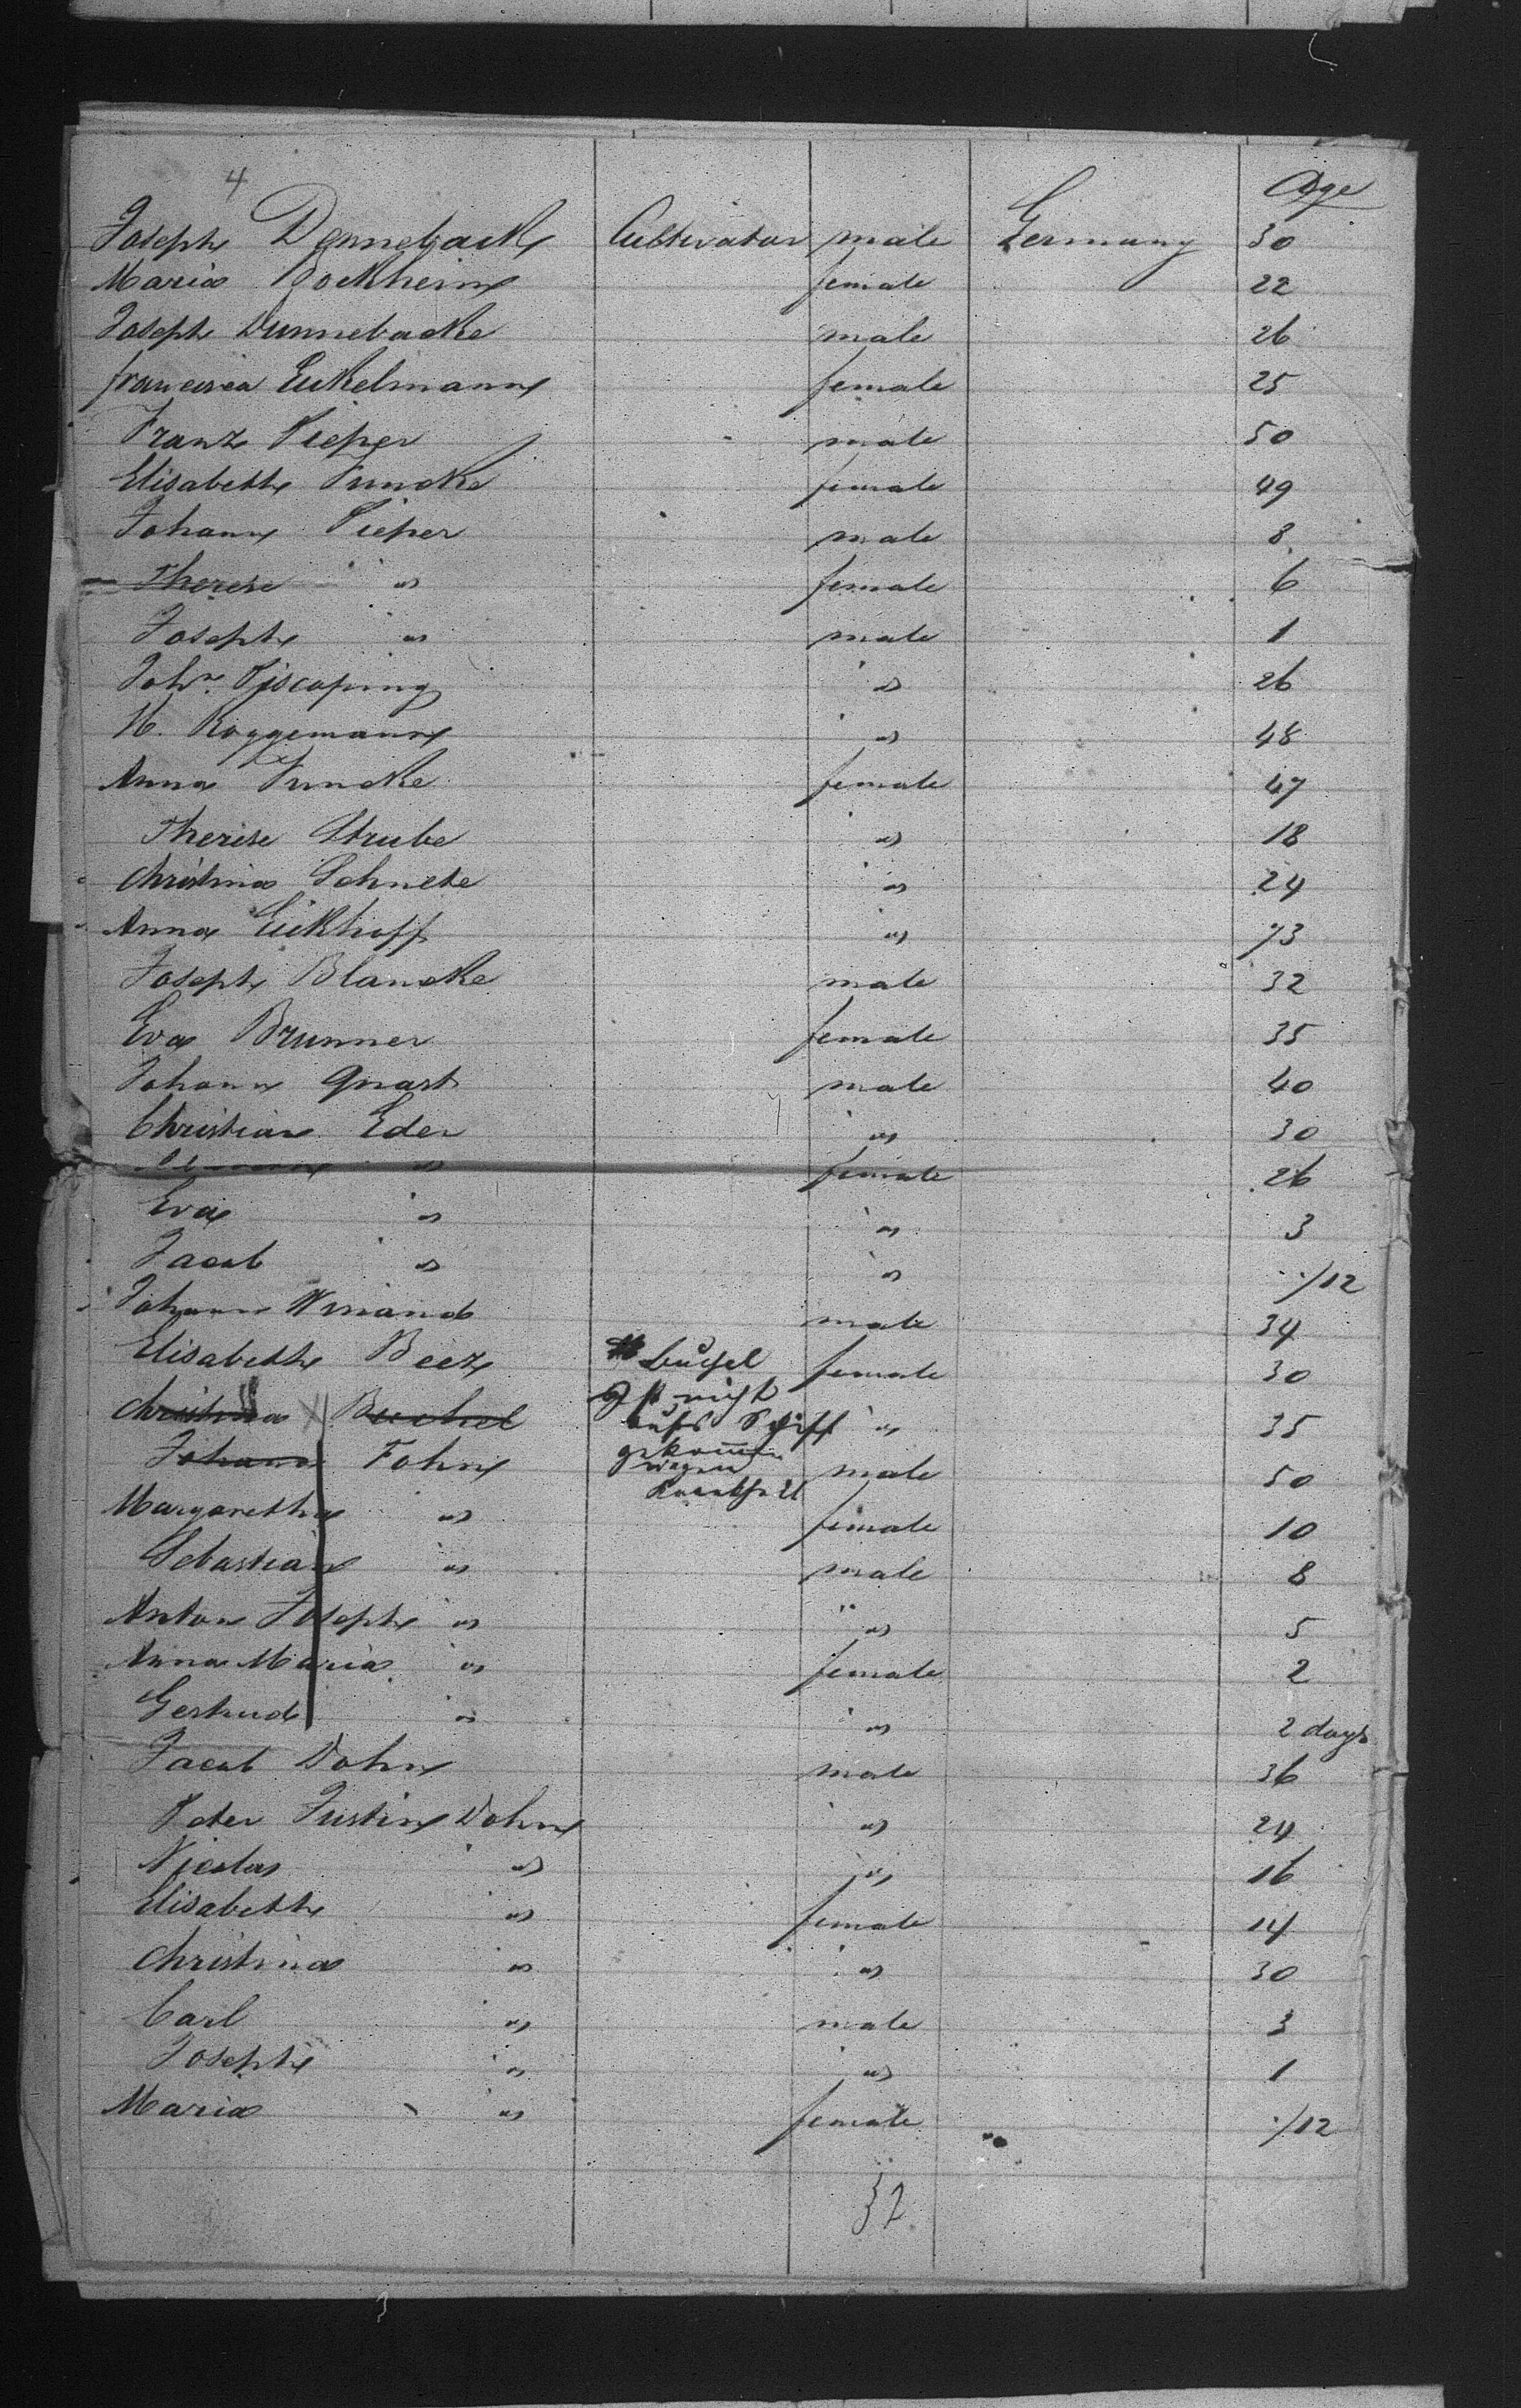 4
Age
Joseph Dennebacke Cultivator male Germany 30
Maria Bockheim female 22
Joseph Dunnebacke male 26
francisca Eickelmann female 25
Franz Pieper male 50
Elisabeth Funcke female 49
Johann Pieper male 8
Therese " female 6
Joseph " male 1
Joh. " 26
H. Roggemann " 48
Anna Funcke female 47
Therese Strube " 18
Christina Schnete " 24
Anna Eickhoff " 73
Joseph Blancke male 32
Eva Brunner female 35
Johann Quast male 40
Christian Eder " 30
" female 26
Eva " " 3
Jacob " " /12
Johann Winand male 34
Elisabeth Beez female 30
Christina Buchel " 35
Buchel
Ist nicht
aufs Schiff
gekommen
wegen
Krankheit
Johann Fohn male 50
Margaretha " female 10
Sebastian " male 8
Anton Joseph " " 5
Anna Maria " female 2
Gertrud " " 2 days
Jacob Dohn male 36
Peter Justin Dohn " 24
Nicolas " " 16
Elisabeth " female 14
Christina " " 30
Carl " male 3
Joseph " " 1
Maria " female /12
32